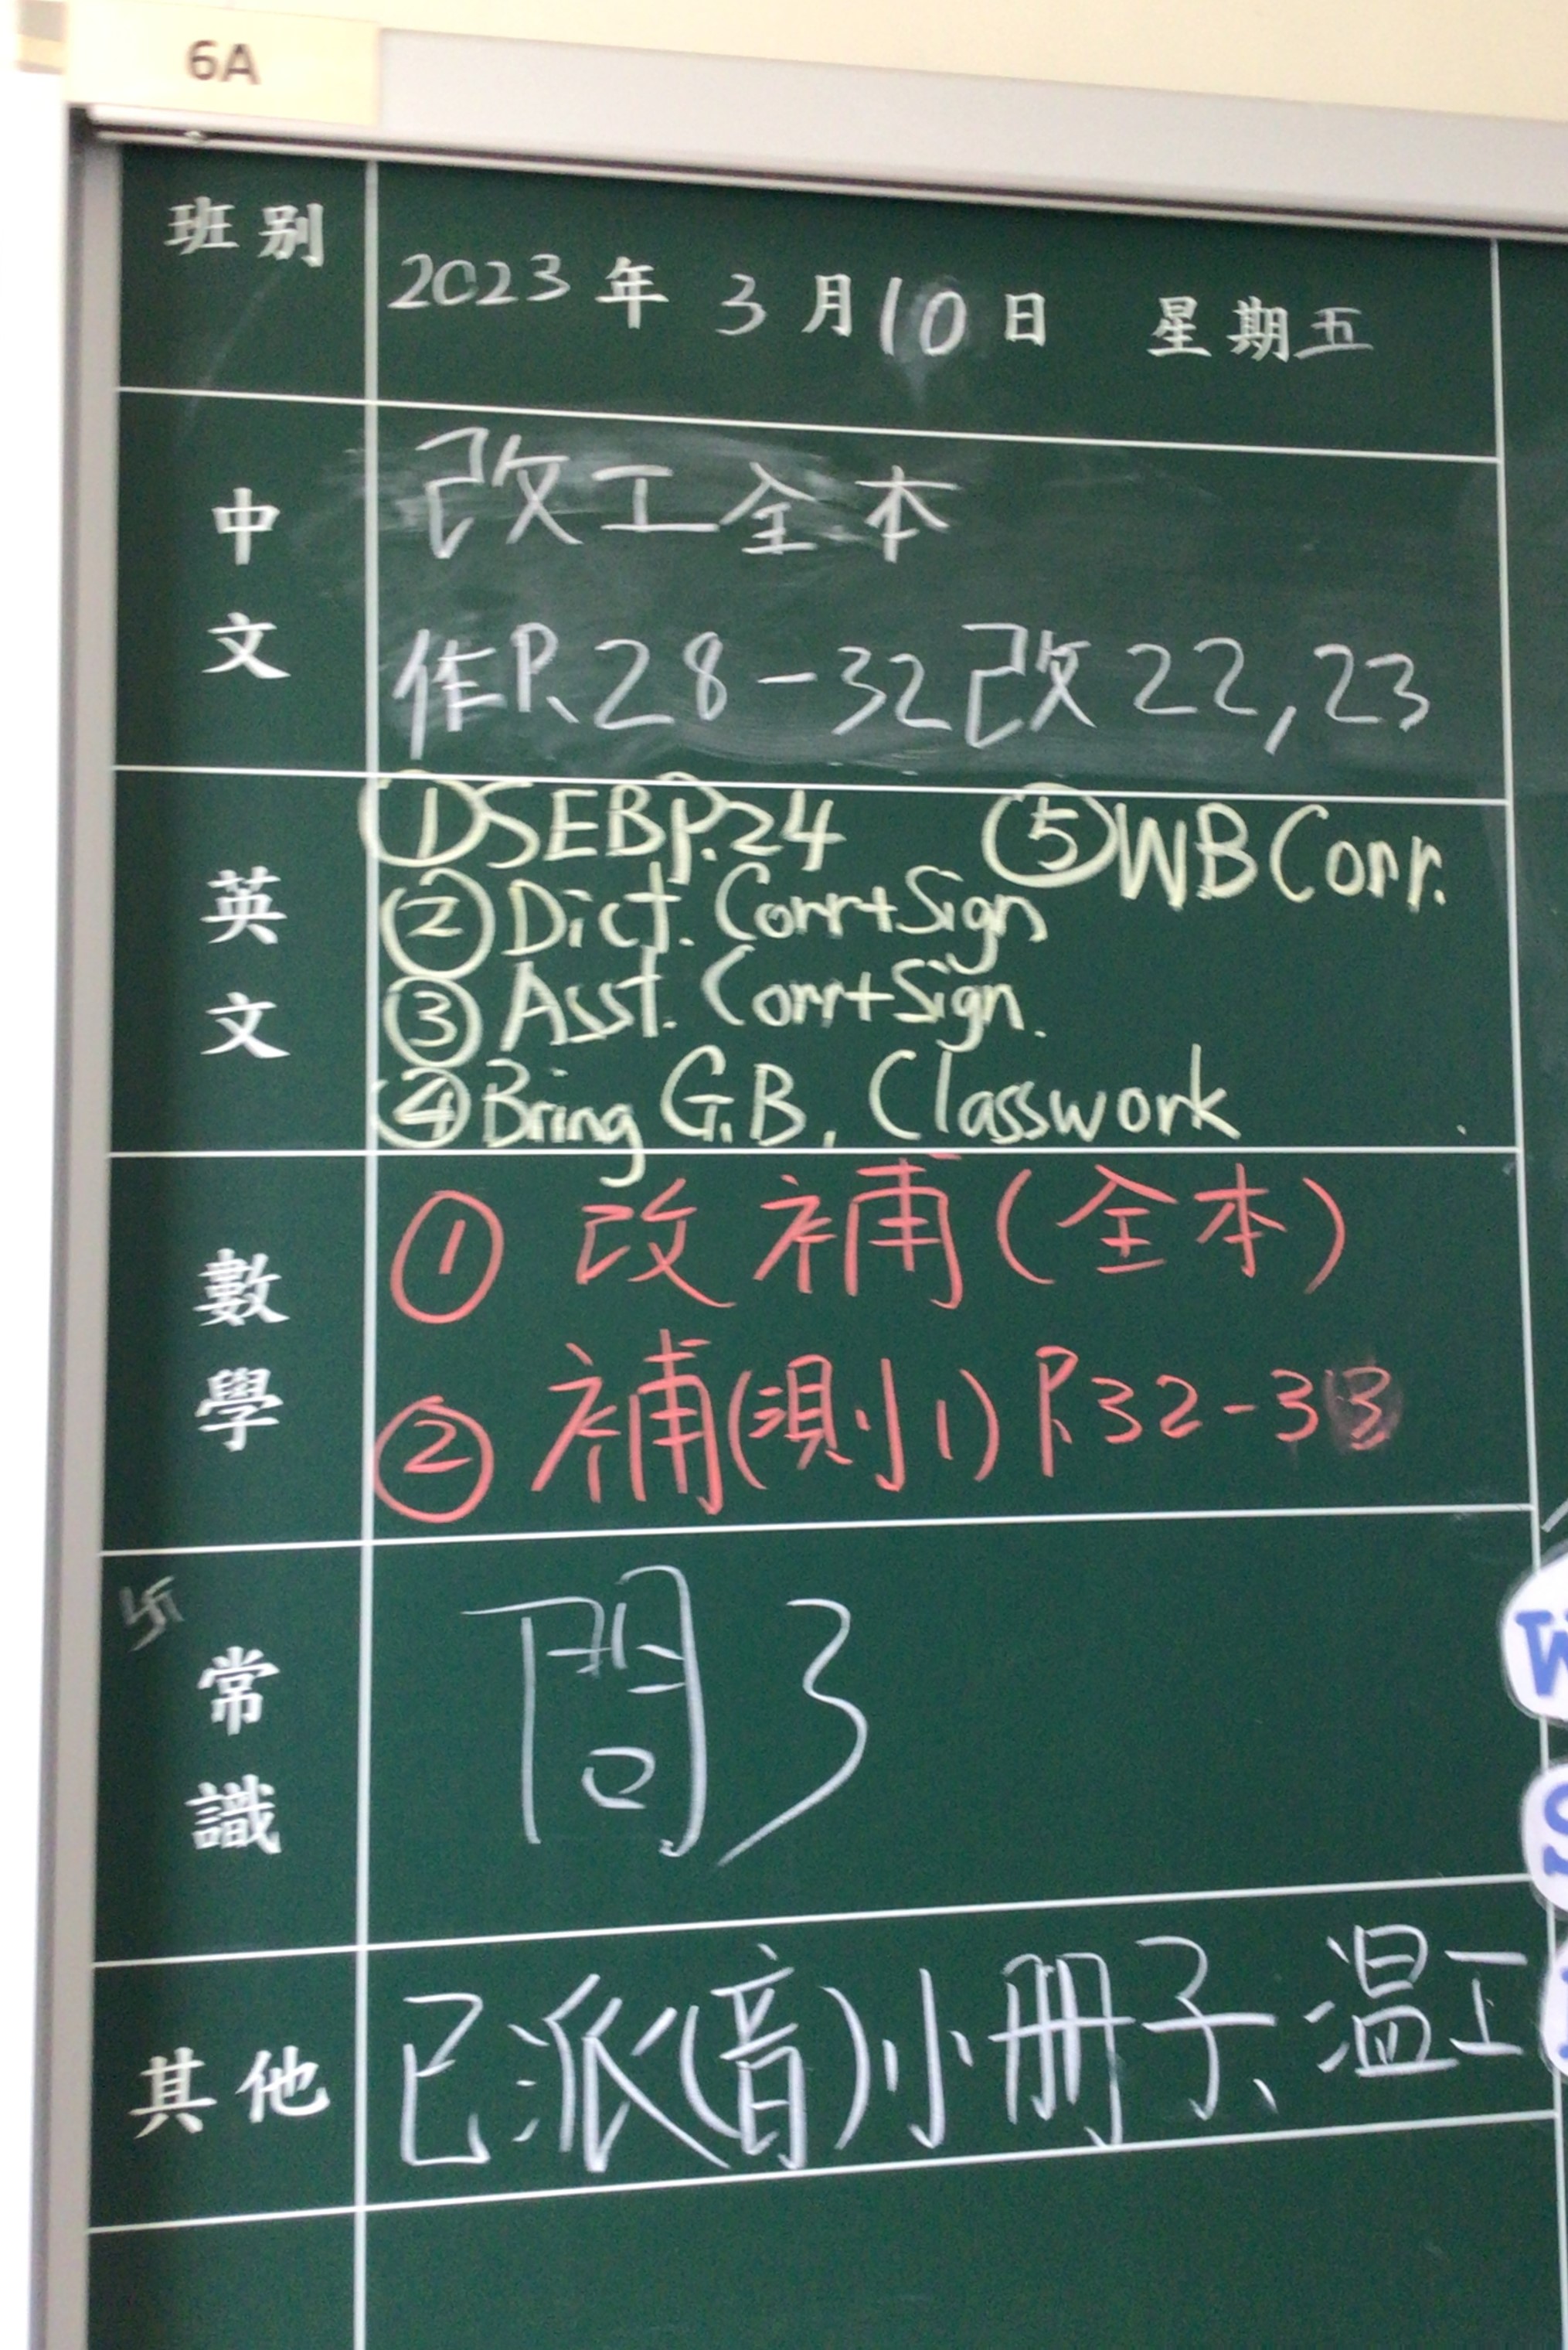 6A
班別
2023年3月10日 星期五
中文
改工全本
作P.28-32改22,23
英文
①SEBP.24 ⑤WB Corr.
②Dict. Corr+Sign
③Asst. Corr+Sign.
④Bring G.B, Classwork
數學
① 改補(全本)
② 補(測小1) P.32-33
常識
問3
其他
已派(音)小冊子、温工
W
S